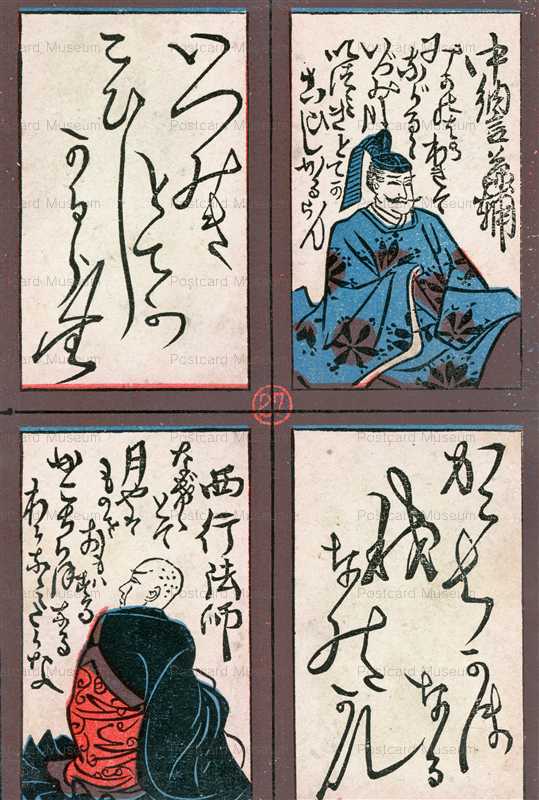 中納言兼輔
みかのはらわきて
ながるゝ
いづみ川
いつみきとてか
こひしかるらん
いつみき
とてか
こひし
かるらむ
27
かこちかほ
なる
我
なみたかな
西行法師
なげけとて
月やは
ものを
おもはする
かこちがほなる
わがなみだかな
Postcard Museum